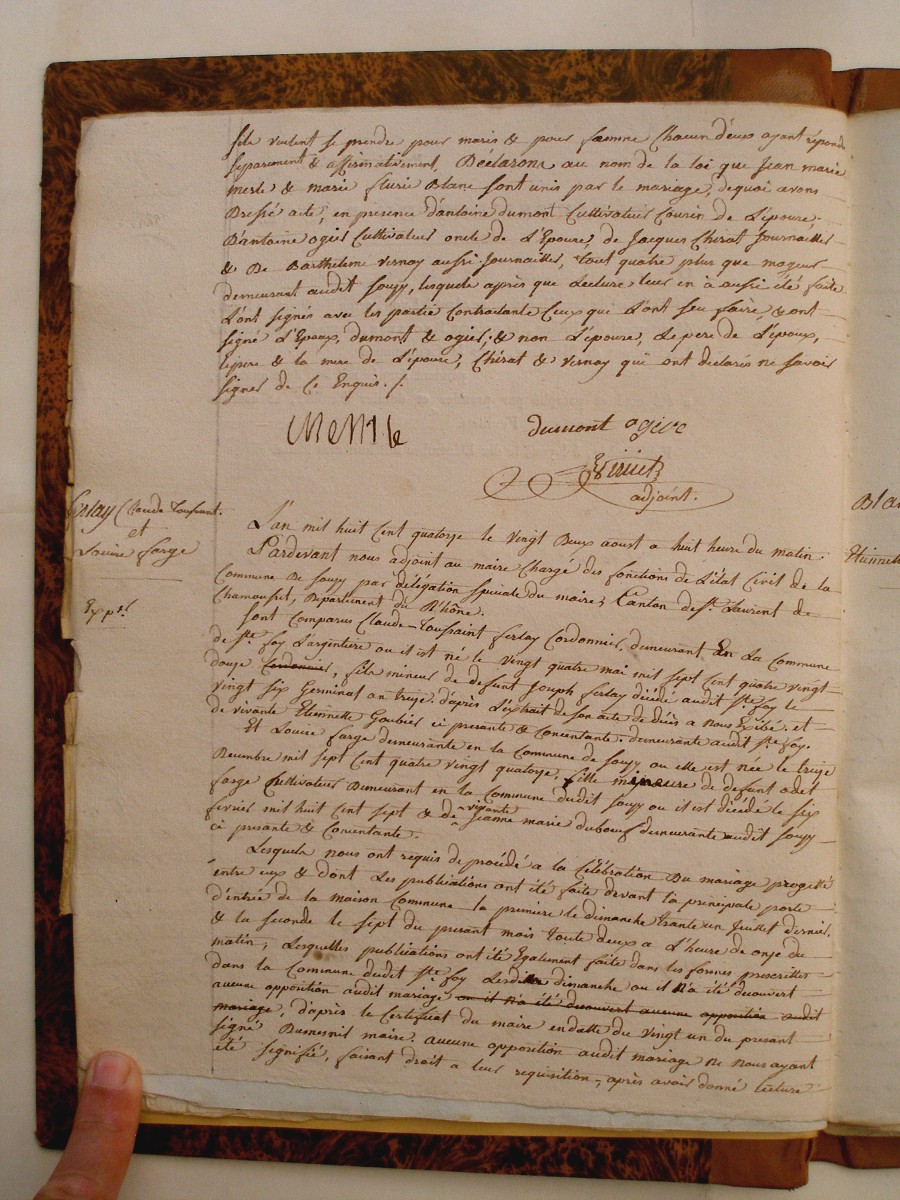 s'ils veulent se prendre pour maris & pour famme Chacun d'eux ayant répondu
separement & affirmativement, Declarons au nom de la loi que Jean marie
merle & marie fleurie Blanc sont unis par le mariage, dequoi avons
Dressé acte, en presence d'antoine dumont Cultivateur Cousin de L'épouse.
D'antoine ogier Cultivateur oncle de L'Epouse, de Jacques Chirat Journaillier
& De Barthelemi vernay aussi Journaillier, tout quatre plus que majeur
demeurant audit souzy, lesquels après que Lecture leur en à aussi été faite
L'ont signés avec les partie Contractante Ceux que L'ont seu faire & ont
signé L'Epoux, dumont & ogier, & non L'épouse, Le pere de L'époux,
le pere & la mere de L'épouse, Chirat & vernay qui ont declarés ne savoir
signer de Ce Enquis ./.
Merlle
dumont ogier
adjoint.
ferlay Claude Toussaint
et
Louise farge
Exp.
L'an mil huit Cent quatorze le vingt Deux aoust a huit heure du matin.
Pardevant nous adjoint au maire Chargé des fonctions de L'état Civil de la
Commune De Souzy par délégation spéciale du maire, Canton de St. Laurent de
Chamousset, Departement du Rhône.
sont Comparus Claude-Toussaint ferlay Cordonnier, demeurant En La Commune
de Ste foy L'argentiere ou il est né le vingt quatre mai mil sept Cent quatre vingt
douze Cordonnier, fils mineur de defunt Joseph ferlay décédé audit Ste foy le
vingt six Germinal an treize. d'après L'extrait de son acte de décès a nous Exibé, et
de vivante Etiennette Goubier ci presante & Concentante. demeurante audit Ste foy.
Et Louise farge demeurante en la Commune de souzy ou elle est née le treize
Decembre mil sept Cent quatre vingt quatorze, fille mineure de defunt
farge Cultivateur Demeurant en la Commune dudit Souzy ou il est décédé le six
fevrier mil huit Cent sept & de vivante Jeanne marie duboeuf demeurante audit souzy
ci presante & Concentante.
Lesquels nous ont requis de procédé a la Célébration Du mariage progetté
entre eux & dont Les publications ont été faite devant la principale porte
d'entrée de la maison Commune la premiere le dimanche trante un Juillet dernier,
& la seconde le sept du presant mois Toute deux a L'heure de onze du
matin, Lesquelles publications ont été Egalement faite dans les formes prescrittes
dans la Commune dudit Ste foy Lesdits dimanche ou il n'a été decouvert
aucune opposition audit mariage ou il n'a été decouvert aucune opposition audit
mariage, d'après le Certificat du maire en datte du vingt un du presant
signé Dumesnil maire. aucune opposition audit mariage ne nous ayant
été signifié, faisant droit a leur requisition, après avoir donné lecture
Blan
Etiennette